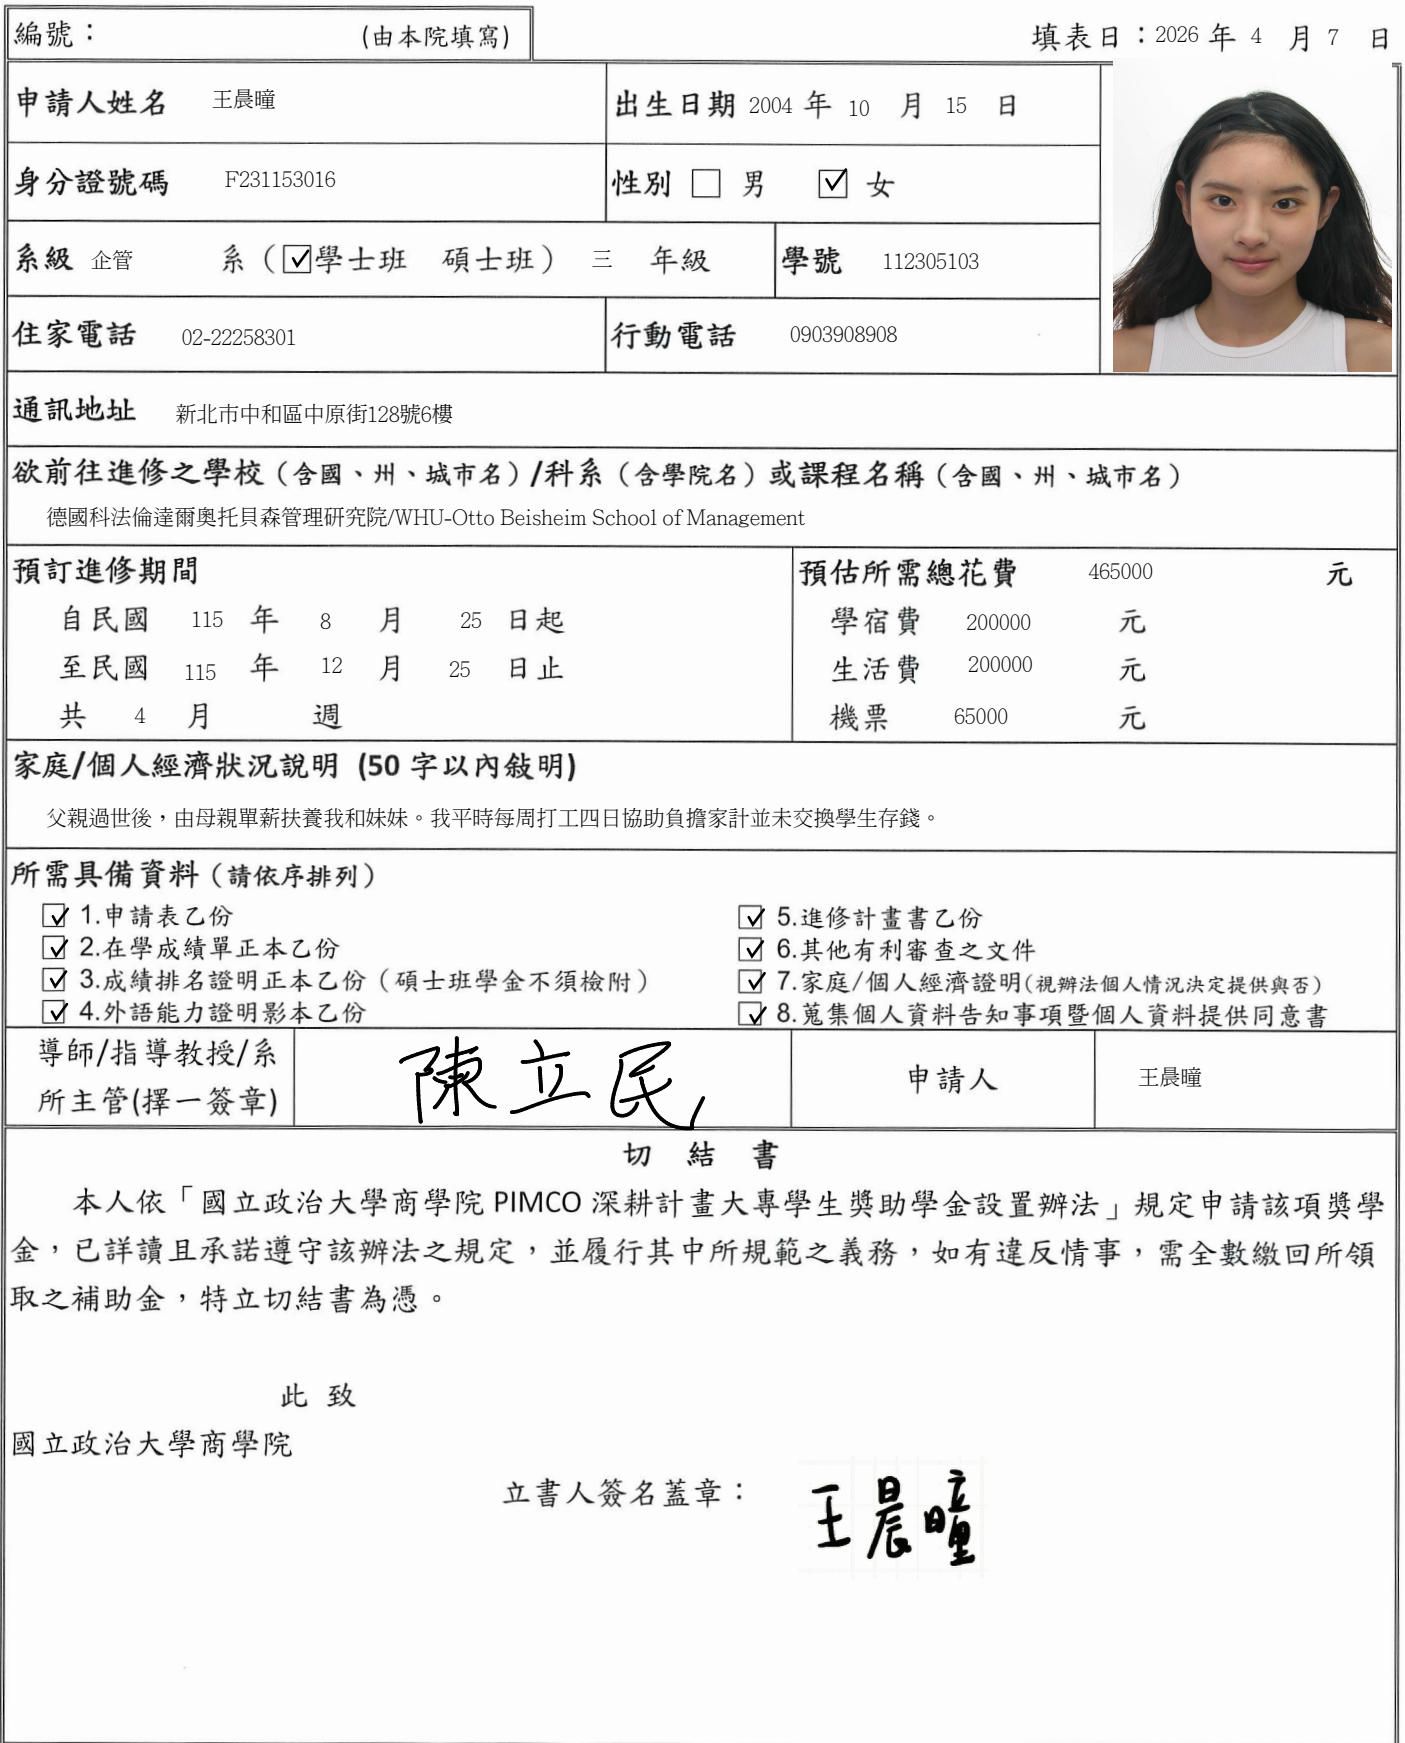 編號： (由本院填寫) 填表日：2026 年 4 月 7 日
申請人姓名 王晨曈 出生日期 2004 年 10 月 15 日
身分證號碼 F231153016 性別 □ 男 ☑ 女
系級 企管 系（☑學士班 碩士班） 三 年級 學號 112305103
住家電話 02-22258301 行動電話 0903908908
通訊地址 新北市中和區中原街128號6樓
欲前往進修之學校（含國、州、城市名）/科系（含學院名）或課程名稱（含國、州、城市名）
德國科法倫達爾奧托貝森管理研究院/WHU-Otto Beisheim School of Management
預訂進修期間 預估所需總花費 465000 元
自民國 115 年 8 月 25 日起 學宿費 200000 元
至民國 115 年 12 月 25 日止 生活費 200000 元
共 4 月 週 機票 65000 元
家庭/個人經濟狀況說明 (50 字以內敍明)
父親過世後，由母親單薪扶養我和妹妹。我平時每周打工四日協助負擔家計並未交換學生存錢。
所需具備資料（請依序排列）
☑ 1.申請表乙份 ☑ 5.進修計畫書乙份
☑ 2.在學成績單正本乙份 ☑ 6.其他有利審查之文件
☑ 3.成績排名證明正本乙份（碩士班學金不須檢附） ☑ 7.家庭/個人經濟證明(視辦法個人情況決定提供與否)
☑ 4.外語能力證明影本乙份 ☑ 8.蒐集個人資料告知事項暨個人資料提供同意書
導師/指導教授/系
所主管(擇一簽章) 陳立民 申請人 王晨曈
切 結 書
本人依「國立政治大學商學院 PIMCO 深耕計畫大專學生獎助學金設置辦法」規定申請該項獎學
金，已詳讀且承諾遵守該辦法之規定，並履行其中所規範之義務，如有違反情事，需全數繳回所領
取之補助金，特立切結書為憑。
此 致
國立政治大學商學院
立書人簽名蓋章： 王晨曈